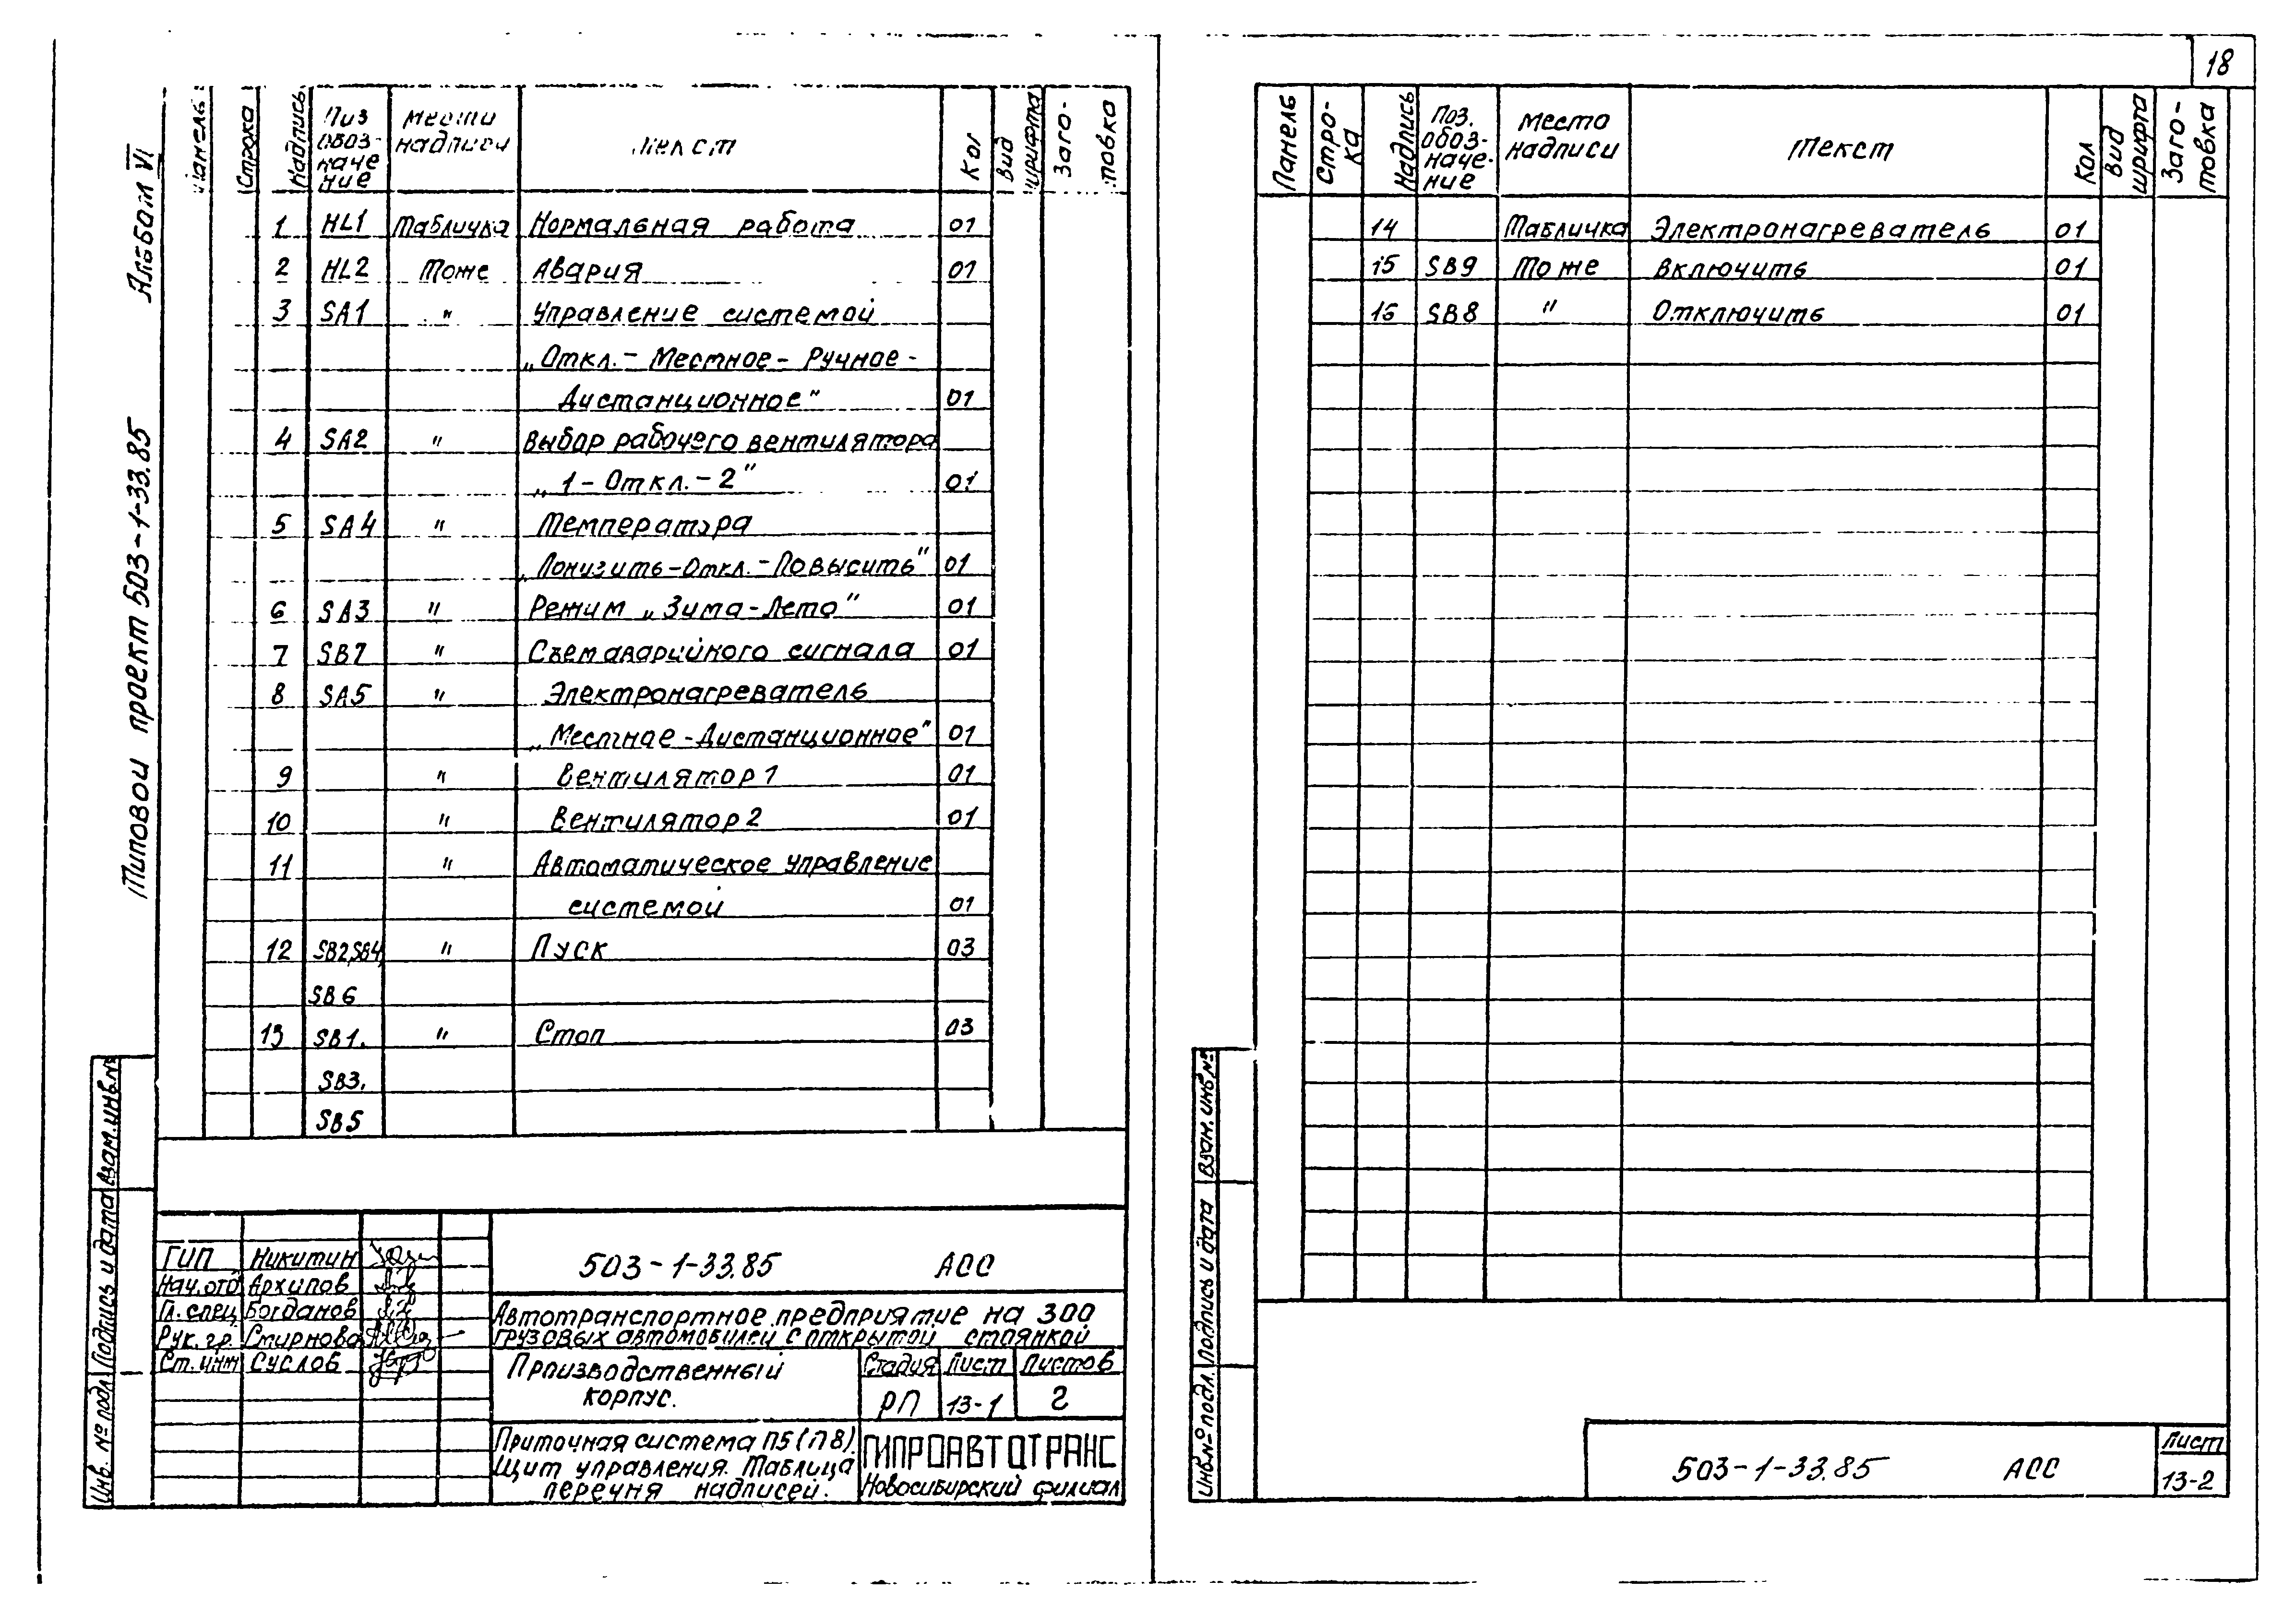 18
Типовой проект 503-1-33.85 Альбом VI
Панель Строка Надпись Поз обозначение Место надписи Текст Кол Вид шрифта Заготовка
1 HL1 Табличка Нормальная работа 01
2 HL2 Тоже Авария 01
3 SA1 " Управление системой
„Откл.- Местное- Ручное-
Дистанционное" 01
4 SA2 " Выбор рабочего вентилятора
„1-Откл.-2" 01
5 SA4 " Температура
„Понизить-Откл.-Повысить" 01
6 SA3 " Режим „Зима-Лето" 01
7 SB7 " Съем аварийного сигнала 01
8 SA5 " Электронагреватель
„Местное-Дистанционное" 01
9 " Вентилятор 1 01
10 " Вентилятор 2 01
11 " Автоматическое управление
системой 01
12 SB2,SB4, " Пуск 03
SB6
13 SB1. " Стоп 03
SB3.
SB5
Инв. № подл Подпись и дата Взам.инв.№
ГИП Никитин
Нач.отд Архипов
Гл. спец Богданов
Рук. гр. Смирнова
Ст. инж Суслов
503-1-33.85 АСС
Автотранспортное предприятие на 300
грузовых автомобилей с открытой стоянкой
Производственный
корпус.
Стадия Лист Листов
РП 13-1 2
Приточная система П5(П8).
Щит управления. Таблица
перечня надписей.
ГИПРОАВТОТРАНС
Новосибирский филиал
Панель Стро-ка Надпись Поз. обоз-наче-ние Место надписи Текст Кол Вид шрифта Заго-товка
14 Табличка Электронагреватель 01
15 SB9 Тоже Включить 01
16 SB8 " Отключить 01
Инв.№ подл. Подпись и дата Взам. инв №
503-1-33.85 АСС
Лист
13-2